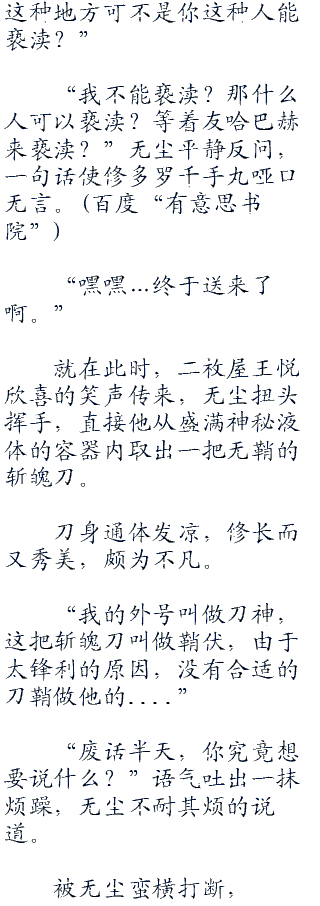 这种地方可不是你这种人能
亵渎？”
“我不能亵渎？那什么
人可以亵渎？等着友哈巴赫
来亵渎？”无尘平静反问，
一句话使修多罗千手丸哑口
无言。(百度“有意思书
院”)
“嘿嘿…终于送来了
啊。”
就在此时，二枚屋王悦
欣喜的笑声传来，无尘扭头
挥手，直接他从盛满神秘液
体的容器内取出一把无鞘的
斩魄刀。
刀身通体发凉，修长而
又秀美，颇为不凡。
“我的外号叫做刀神，
这把斩魄刀叫做鞘伏，由于
太锋利的原因，没有合适的
刀鞘做他的....”
“废话半天，你究竟想
要说什么？”语气吐出一抹
烦躁，无尘不耐其烦的说
道。
被无尘蛮横打断，